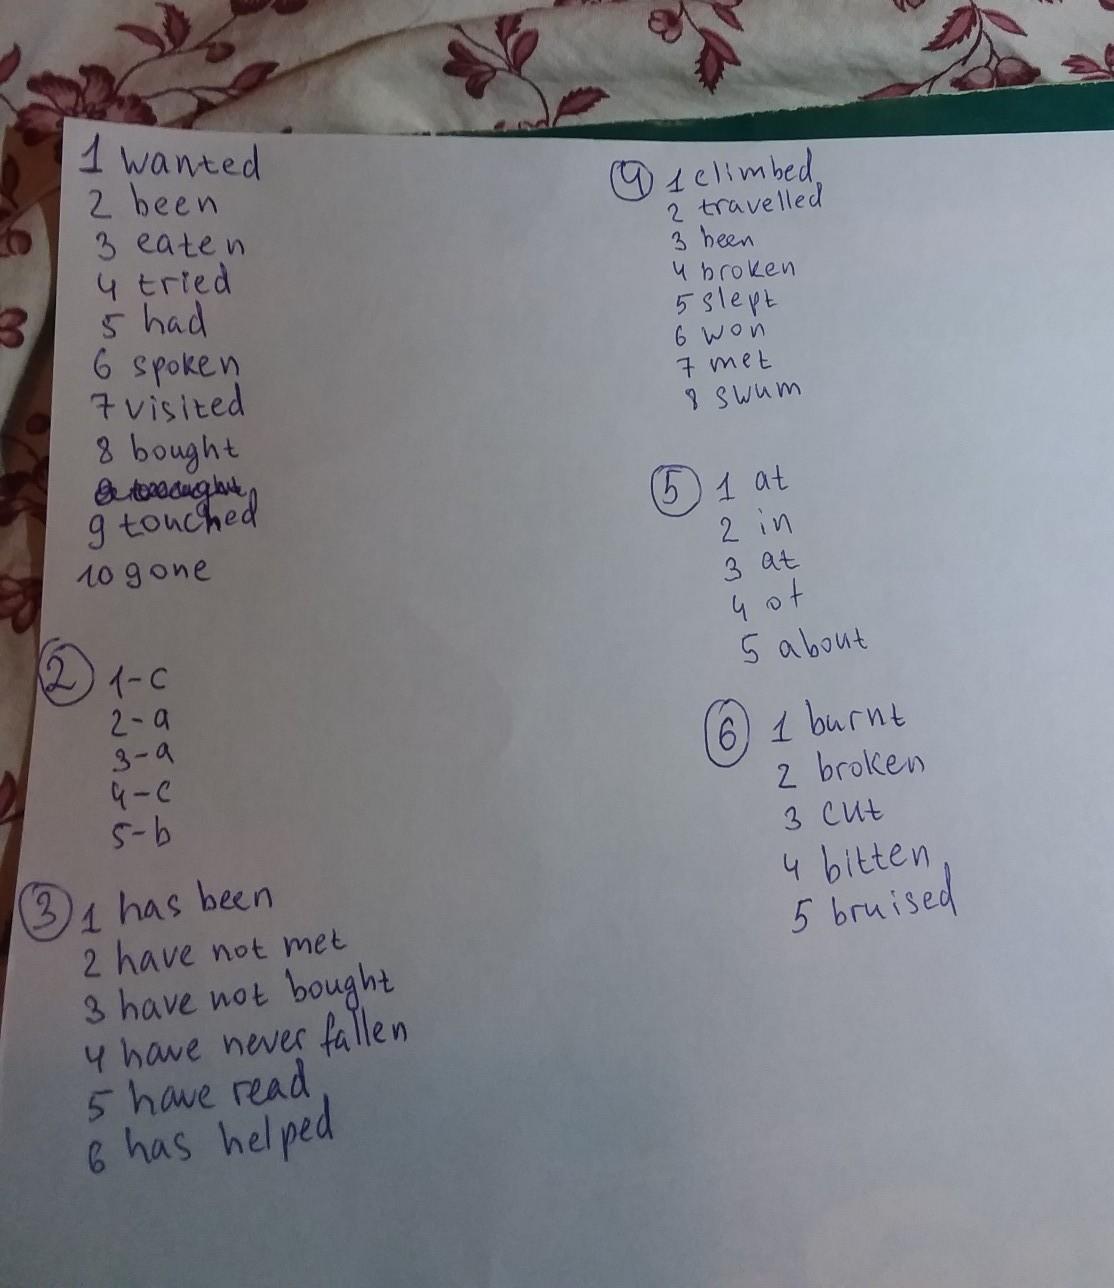 1 wanted
2 been
3 eaten
4 tried
5 had
6 spoken
7 visited
8 bought
9 touched
10 gone
2 1-c
2-a
3-a
4-c
5-b
3 1 has been
2 have not met
3 have not bought
4 have never fallen
5 have read
6 has helped
4 1 climbed
2 travelled
3 been
4 broken
5 slept
6 won
7 met
8 swum
5 1 at
2 in
3 at
4 of
5 about
6 1 burnt
2 broken
3 cut
4 bitten
5 bruised